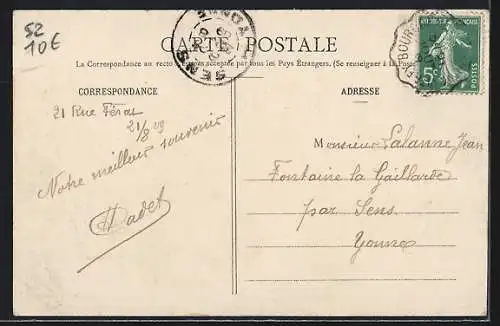 52
10€
CARTE POSTALE
La Correspondance au recto n'est pas acceptée par tous les Pays Étrangers. (Se renseigner à la Poste)
SENS
RÉPUBLIQUE FRANÇAISE
5c
POSTES
CORRESPONDANCE
ADRESSE
21 Rue Féras
21/8 09
Notre meilleur souvenir
Hadet
Monsieur Lalanne Jean
Fontaine la Gaillarde
par Sens
Yonne